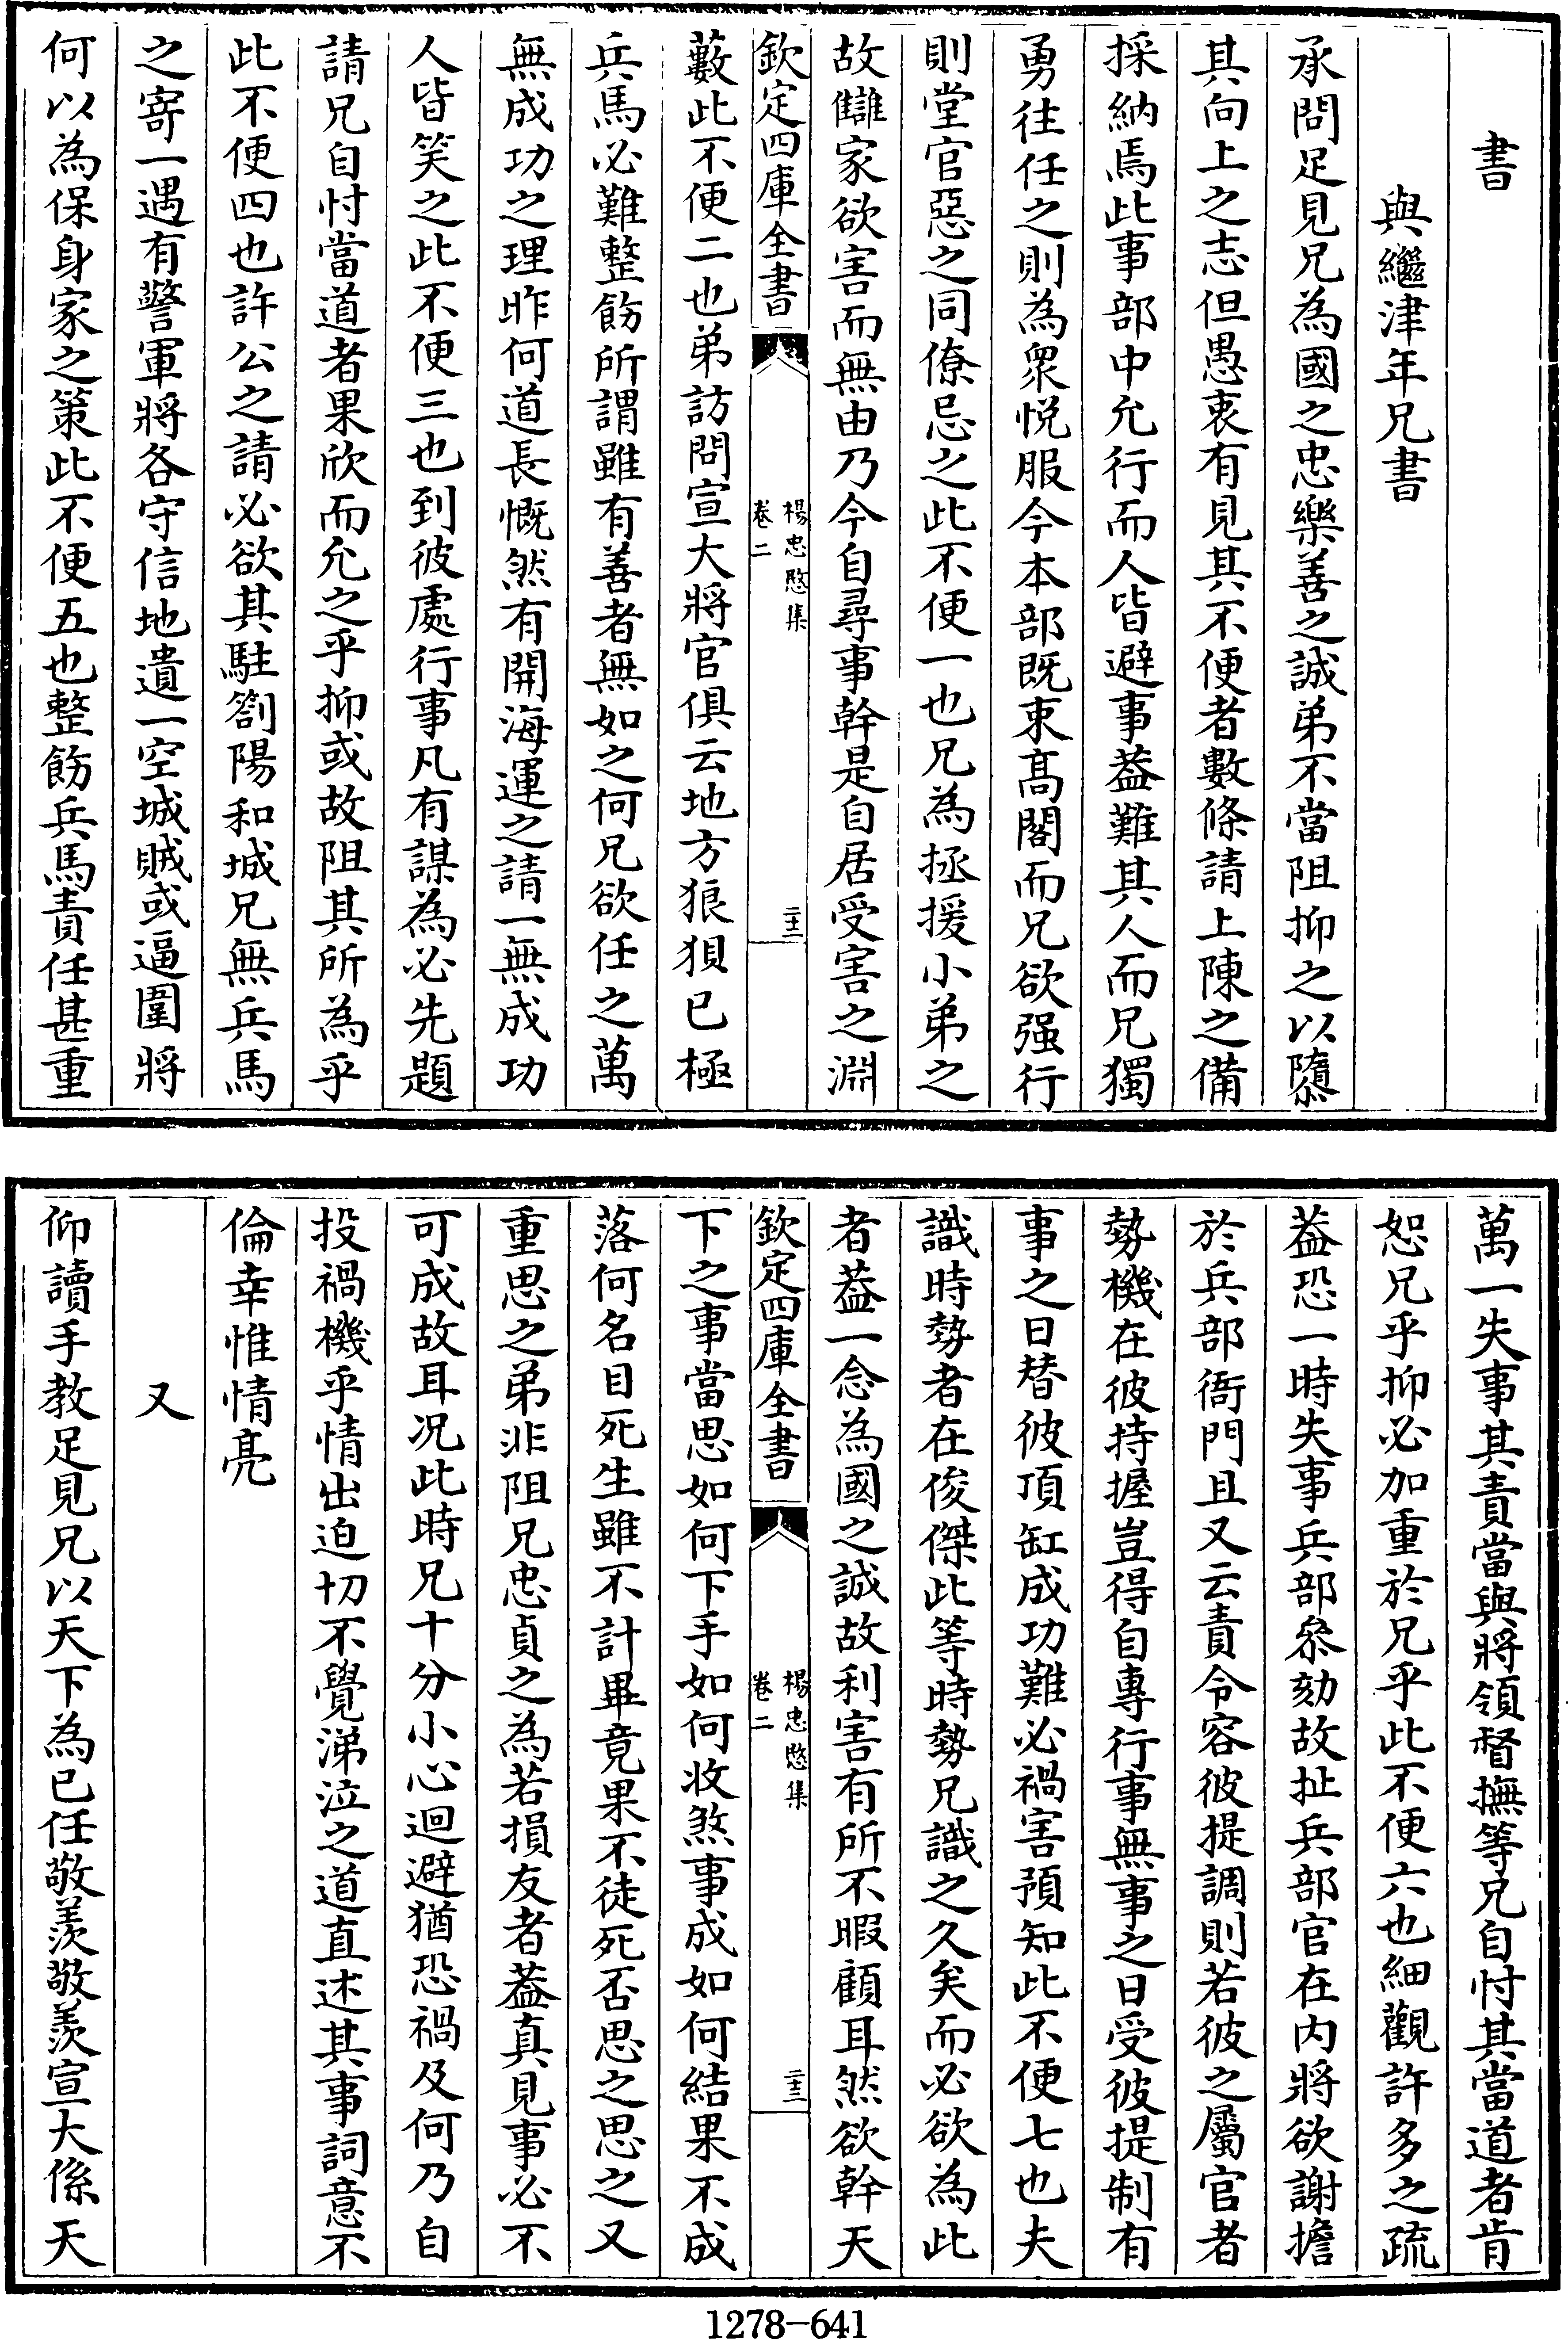 書
與繼津年兄書
承問足見兄為國之忠樂善之誠弟不當阻抑之以隳
其向上之志但愚衷有見其不便者數條請上陳之備
採納焉此事部中允行而人皆避事葢難其人而兄獨
勇往任之則為衆悦服今本部既束髙閣而兄欲强行
則堂官惡之同僚忌之此不便一也兄為拯援小弟之
故讎家欲害而無由乃今自尋事幹是自居受害之淵
欽定四庫全書
楊忠愍集
卷二
二十二
藪此不便二也弟訪問宣大將官俱云地方狼狽已極
兵馬必難整飭所謂雖有善者無如之何兄欲任之萬
無成功之理昨何道長慨然有開海運之請一無成功
人皆笑之此不便三也到彼處行事凡有謀為必先題
請兄自忖當道者果欣而允之乎抑或故阻其所為乎
此不便四也許公之請必欲其駐劄陽和城兄無兵馬
之寄一遇有警軍將各守信地遺一空城賊或逼圍將
何以為保身家之策此不便五也整飭兵馬責任甚重
萬一失事其責當與將領督撫等兄自忖其當道者肯
恕兄乎抑必加重於兄乎此不便六也細觀許多之疏
葢恐一時失事兵部叅劾故扯兵部官在内將欲謝擔
於兵部衙門且又云責令容彼提調則若彼之屬官者
勢機在彼持握豈得自專行事無事之日受彼提制有
事之日替彼頂缸成功難必禍害預知此不便七也夫
識時勢者在俊傑此等時勢兄識之久矣而必欲為此
者葢一念為國之誠故利害有所不暇顧耳然欲幹天
欽定四庫全書
楊忠愍集
卷二
二十三
下之事當思如何下手如何收煞事成如何結果不成
落何名目死生雖不計畢竟果不徒死否思之思之又
重思之弟非阻兄忠貞之為若損友者葢真見事必不
可成故耳况此時兄十分小心迴避猶恐禍及何乃自
投禍機乎情出迫切不覺涕泣之道直述其事詞意不
倫幸惟情亮
又
仰讀手教足見兄以天下為已任敬羨敬羨宣大係天
1278-641